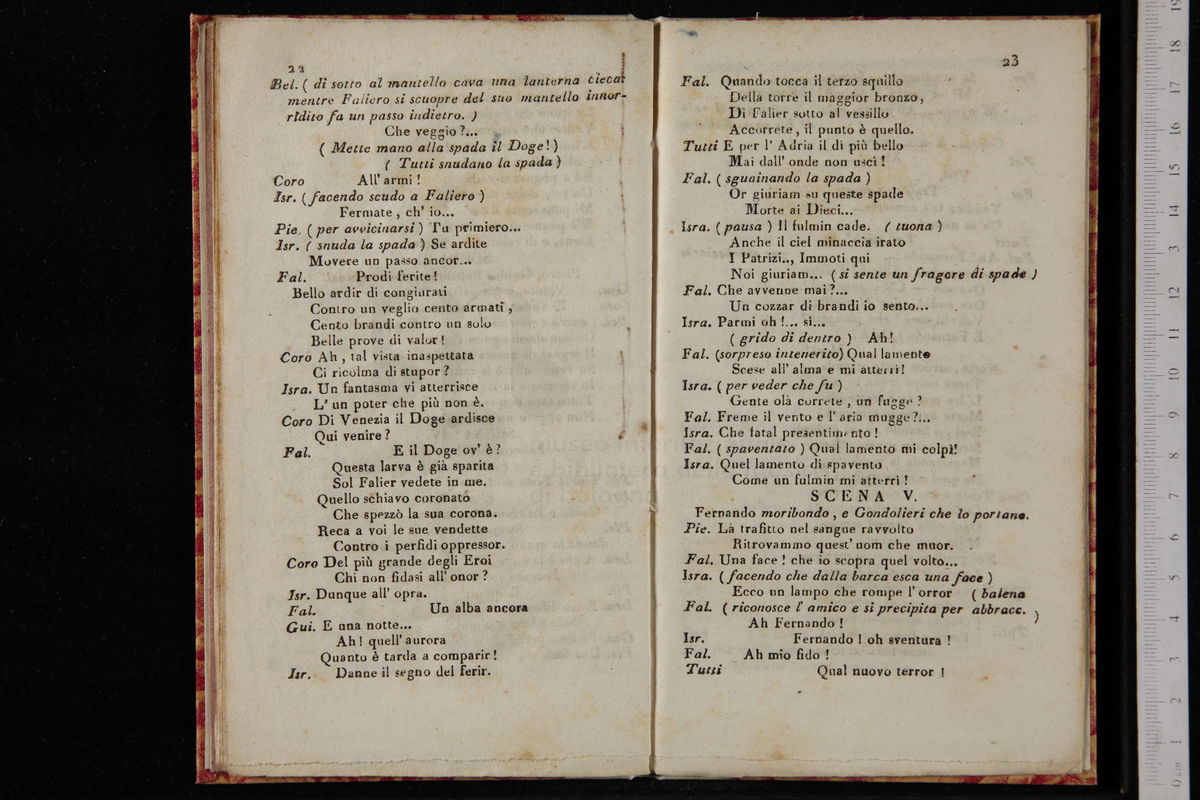 22
Bel. ( di sotto al mantello cava una lanterna cieca:
mentre Faliero si scuopre del suo mantello innor-
ridito fa un passo indietro. )
Che veggio ?...
( Mette mano alla spada il Doge! )
( Tutti snudano la spada )
Coro All' armi !
Isr. ( facendo scudo a Faliero )
Fermate , ch' io...
Pie. ( per avvicinarsi ) Tu primiero...
Isr. ( snuda la spada ) Se ardite
Movere un passo ancor...
Fal. Prodi ferite !
Bello ardir di congiurati
Contro un veglio cento armati ,
Cento brandi contro un solo
Belle prove di valor !
Coro Ah , tal vista inaspettata
Ci ricolma di stupor ?
Isra. Un fantasma vi atterrisce
L' un poter che più non è.
Coro Di Venezia il Doge ardisce
Qui venire ?
Fal. E il Doge ov' è ?
Questa larva è già sparita
Sol Falier vedete in me.
Quello schiavo coronato
Che spezzò la sua corona.
Reca a voi le sue vendette
Contro i perfidi oppressor.
Coro Del più grande degli Eroi
Chi non fidasi all' onor ?
Isr. Dunque all' opra.
Fal. Un alba ancora
Gui. E una notte...
Ah ! quell' aurora
Quanto è tarda a comparir !
Isr. Danne il segno del ferir.
23
Fal. Quando tocca il terzo squillo
Della torre il maggior bronzo,
Di Falier sotto al vessillo
Accorrete , il punto è quello.
Tutti E per l' Adria il di più bello
Mai dall' onde non uscì !
Fal. ( sguainando la spada )
Or giuriam su queste spade
Morte ai Dieci...
Isra. ( pausa ) Il fulmin cade. ( tuona )
Anche il ciel minaccia irato
I Patrizi.., Immoti qui
Noi giuriam... ( si sente un fragore di spade )
Fal. Che avvenne mai ?...
Un cozzar di brandi io sento...
Isra. Parmi oh !... sì...
( grido di dentro ) Ah!
Fal. (sorpreso intenerito) Qual lamento
Scese all' alma e mi atterrì!
Isra. ( per veder che fu )
Gente olà correte , un fugge ?
Fal. Freme il vento e l' aria mugge?...
Isra. Che fatal presentimento !
Fal. ( spaventato ) Qual lamento mi colpì!
Isra. Quel lamento di spavento
Come un fulmin mi atterrì !
SCENA V.
Fernando moribondo , e Gondolieri che lo portano.
Pie. Là trafitto nel sangue ravvolto
Ritrovammo quest' uom che muor.
Fal. Una face ! che io scopra quel volto...
Isra. ( facendo che dalla barca esca una face )
Ecco un lampo che rompe l' orror ( balena
Fal. ( riconosce l' amico e si precipita per abbracc. )
Ah Fernando !
Isr. Fernando ! oh sventura !
Fal. Ah mio fido !
Tutti Qual nuovo terror !